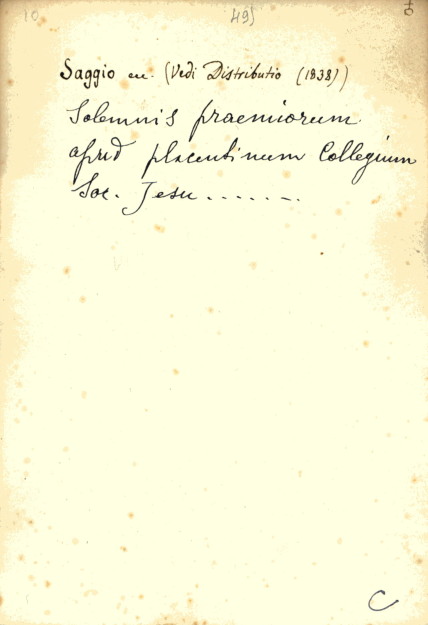 10 49)
Saggio ec. (Vedi Distributio (1838))
Solemnis praemiorum
apud placentinum Collegium
Soc. Jesu .......
C